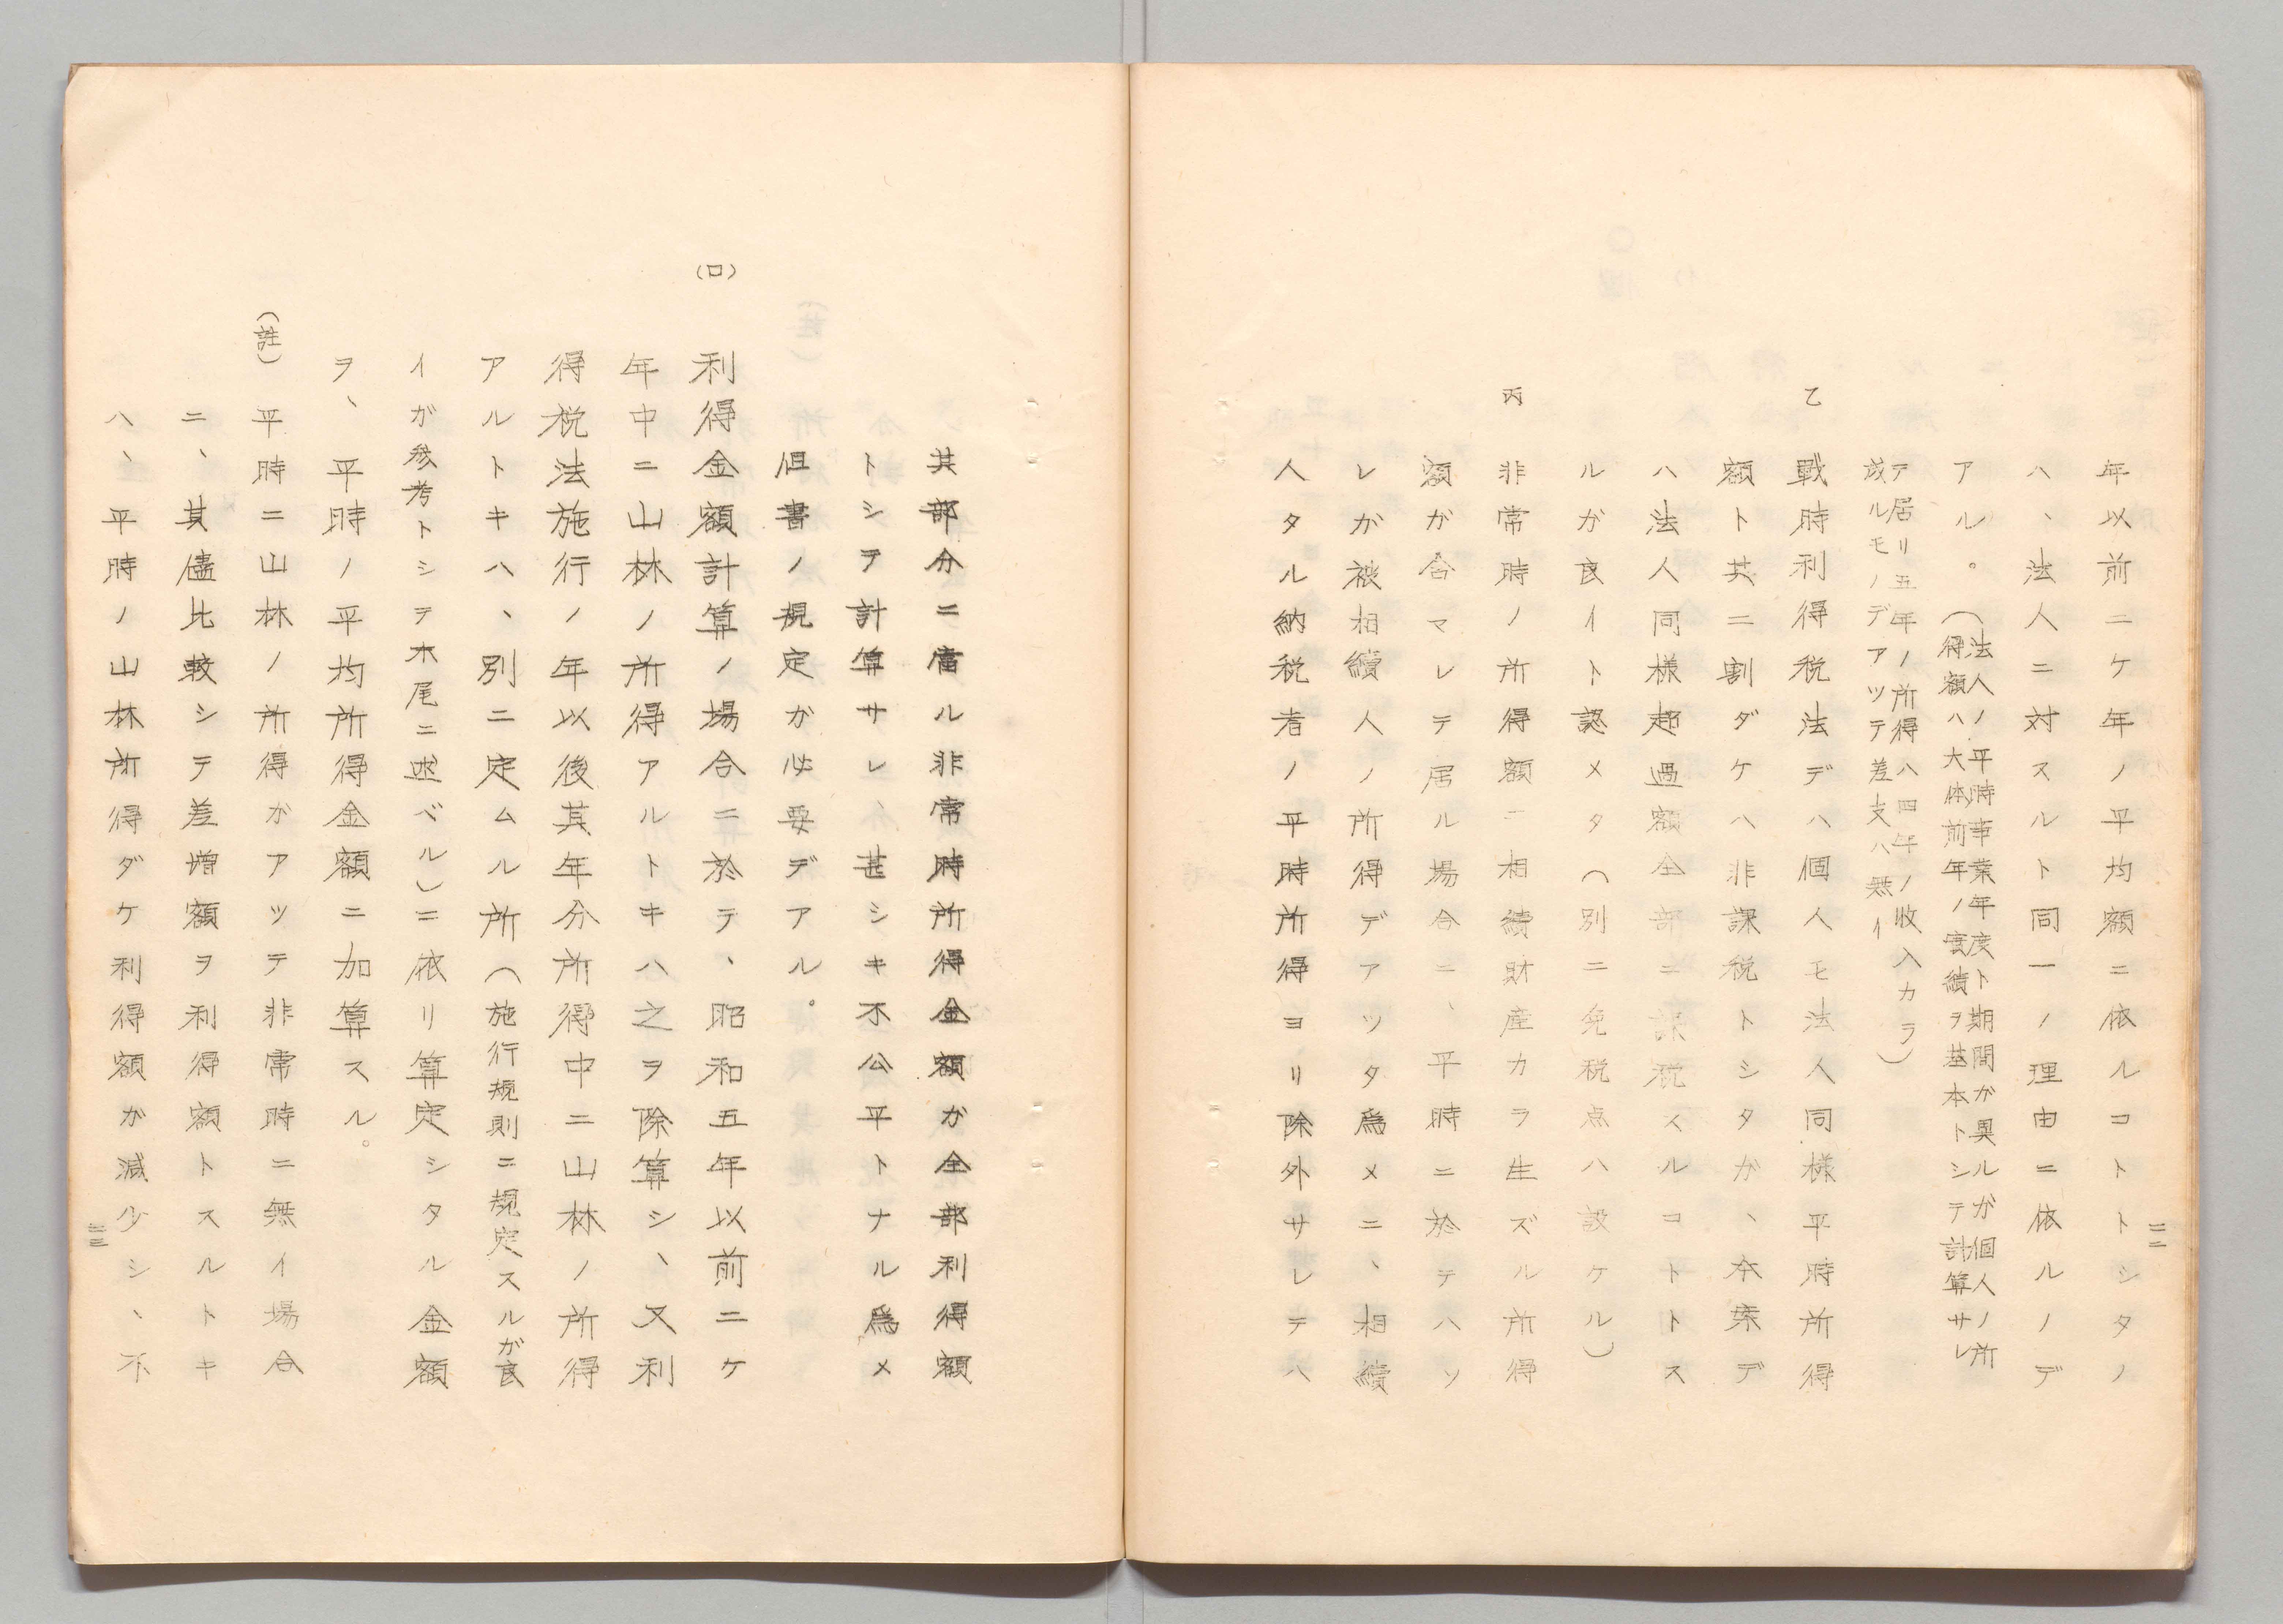 年以前ニケ年ノ平均額ニ依ルコトトシタノ
ハ、法人ニ対スルト同一ノ理由ニ依ルノデ
アル。（法人ノ平時事業年度ト期間が異ルが個人ノ所
得額ハ大体前年ノ実績ヲ基本トシテ計算サレ
テ居リ五年ノ所得ハ四年ノ収入カラ
成ルモノデアツテ差支ハ無イ）
乙 戦時利得税法デハ個人モ法人同様平時所得
額ト其ニ割ダケハ非課税トシタが、本案デ
ハ法人同様超過額全部ニ課税スルコトトス
ルが良イト認メタ（別ニ免税点ハ設ケル）
丙 非常時ノ所得額ニ相続財産カラ生ズル所得
額が含マレテ居ル場合ニ、平時ニ於テハソ
レが被相続人ノ所得デアツタ為メニ、相続
人タル納税者ノ平時所得ヨリ除外サレテハ
三二
其部分ニ當ル非常時所得金額が全部利得額
トシテ計算サレ、甚シキ不公平トナル為メ
但書ノ規定が必要デアル。
（ロ） 利得金額計算ノ場合ニ於テ、昭和五年以前ニケ
年中ニ山林ノ所得アルトキハ之ヲ除算シ、又利
得税法施行ノ年以後其年分所得中ニ山林ノ所得
アルトキハ、別ニ定ムル所（施行規則ニ規定スルが良
イが参考トシテ末尾ニ述ベル）ニ依リ算定シタル金額
ヲ、平時ノ平均所得金額ニ加算スル。
（註） 平時ニ山林ノ所得がアツテ非常時ニ無イ場合
ニ、其儘比較シテ差増額ヲ利得額トスルトキ
ハ、平時ノ山林所得ダケ利得額が減少シ、不
三三